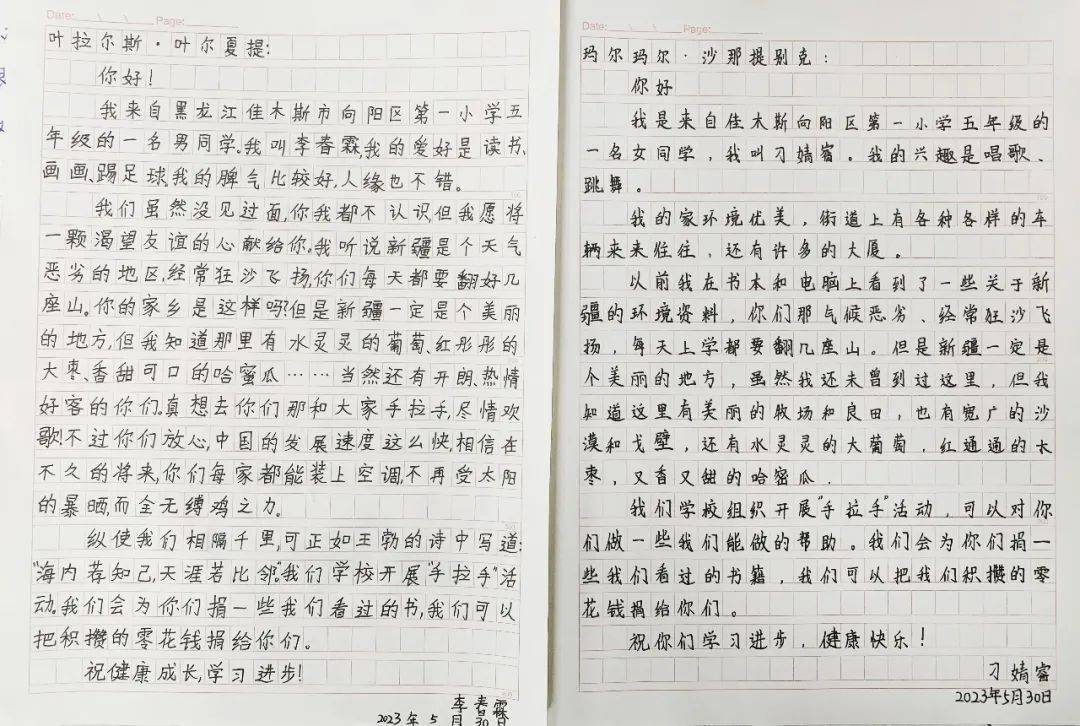 Date: \ \ Page:
叶拉尔斯·叶尔夏提:
你好!
我来自黑龙江佳木斯市向阳区第一小学五
年级的一名男同学。我叫李春霖,我的爱好是读书、
画画、踢足球,我的脾气比较好,人缘也不错。
我们虽然没见过面,你我都不认识,但我愿将
一颗渴望友谊的心献给你。我听说新疆是个天气
恶劣的地区,经常狂沙飞扬,你们每天都要翻好几
座山。你的家乡是这样吗?但是新疆一定是个美丽
的地方,但我知道那里有水灵灵的葡萄、红彤彤的
大枣、香甜可口的哈蜜瓜……当然还有开朗、热情
好客的你们。真想去你们那和大家手拉手,尽情欢
歌!不过你们放心,中国的发展速度这么快,相信在
不久的将来,你们每家都能装上空调,不再受太阳
的暴晒,而全无缚鸡之力。
纵使我们相隔千里,可正如王勃的诗中写道:
"海内存知己,天涯若比邻。"我们学校开展"手拉手"活
动。我们会为你们捐一些我们看过的书,我们可以
把积攒的零花钱捐给你们。
祝健康成长,学习进步!
李春霖
2023年5月30日
Date: \ \ Page:
玛尔玛尔·沙那提别克:
你好
我是来自佳木斯向阳区第一小学五年级的
一名女同学,我叫刁婧睿。我的兴趣是唱歌、
跳舞。
我的家环境优美,街道上有各种各样的车
辆来来往往,还有许多的大厦。
以前我在书本和电脑上看到了一些关于新
疆的环境资料,你们那气候恶劣、经常狂沙飞
扬,每天上学都要翻几座山。但是新疆一定是
个美丽的地方,虽然我还未曾到过这里,但我
知道这里有美丽的牧场和良田,也有宽广的沙
漠和戈壁,还有水灵灵的大葡萄,红通通的大
枣,又香又甜的哈密瓜.
我们学校组织开展"手拉手"活动,可以对你
们做一些我们能做的帮助。我们会为你们捐一
些我们看过的书籍,我们可以把我们积攒的零
花钱捐给你们。
祝你们学习进步,健康快乐!
刁婧睿
2023年5月30日